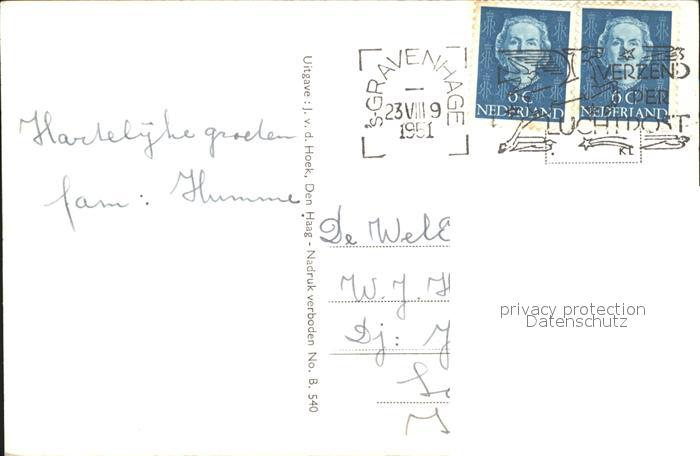 Hartelijke groeten
fam: Humme
Uitgave: J. v. d. Hoek, Den Haag - Nadruk verboden No. B. 540
'sGRAVENHAGE
23 VIII 9
1951
6 C
NEDERLAND
6 C
NEDERLAND
VERZEND
PER
LUCHTPOST
KL
De Wel
W. J. H
Dj:
privacy protection
Datenschutz